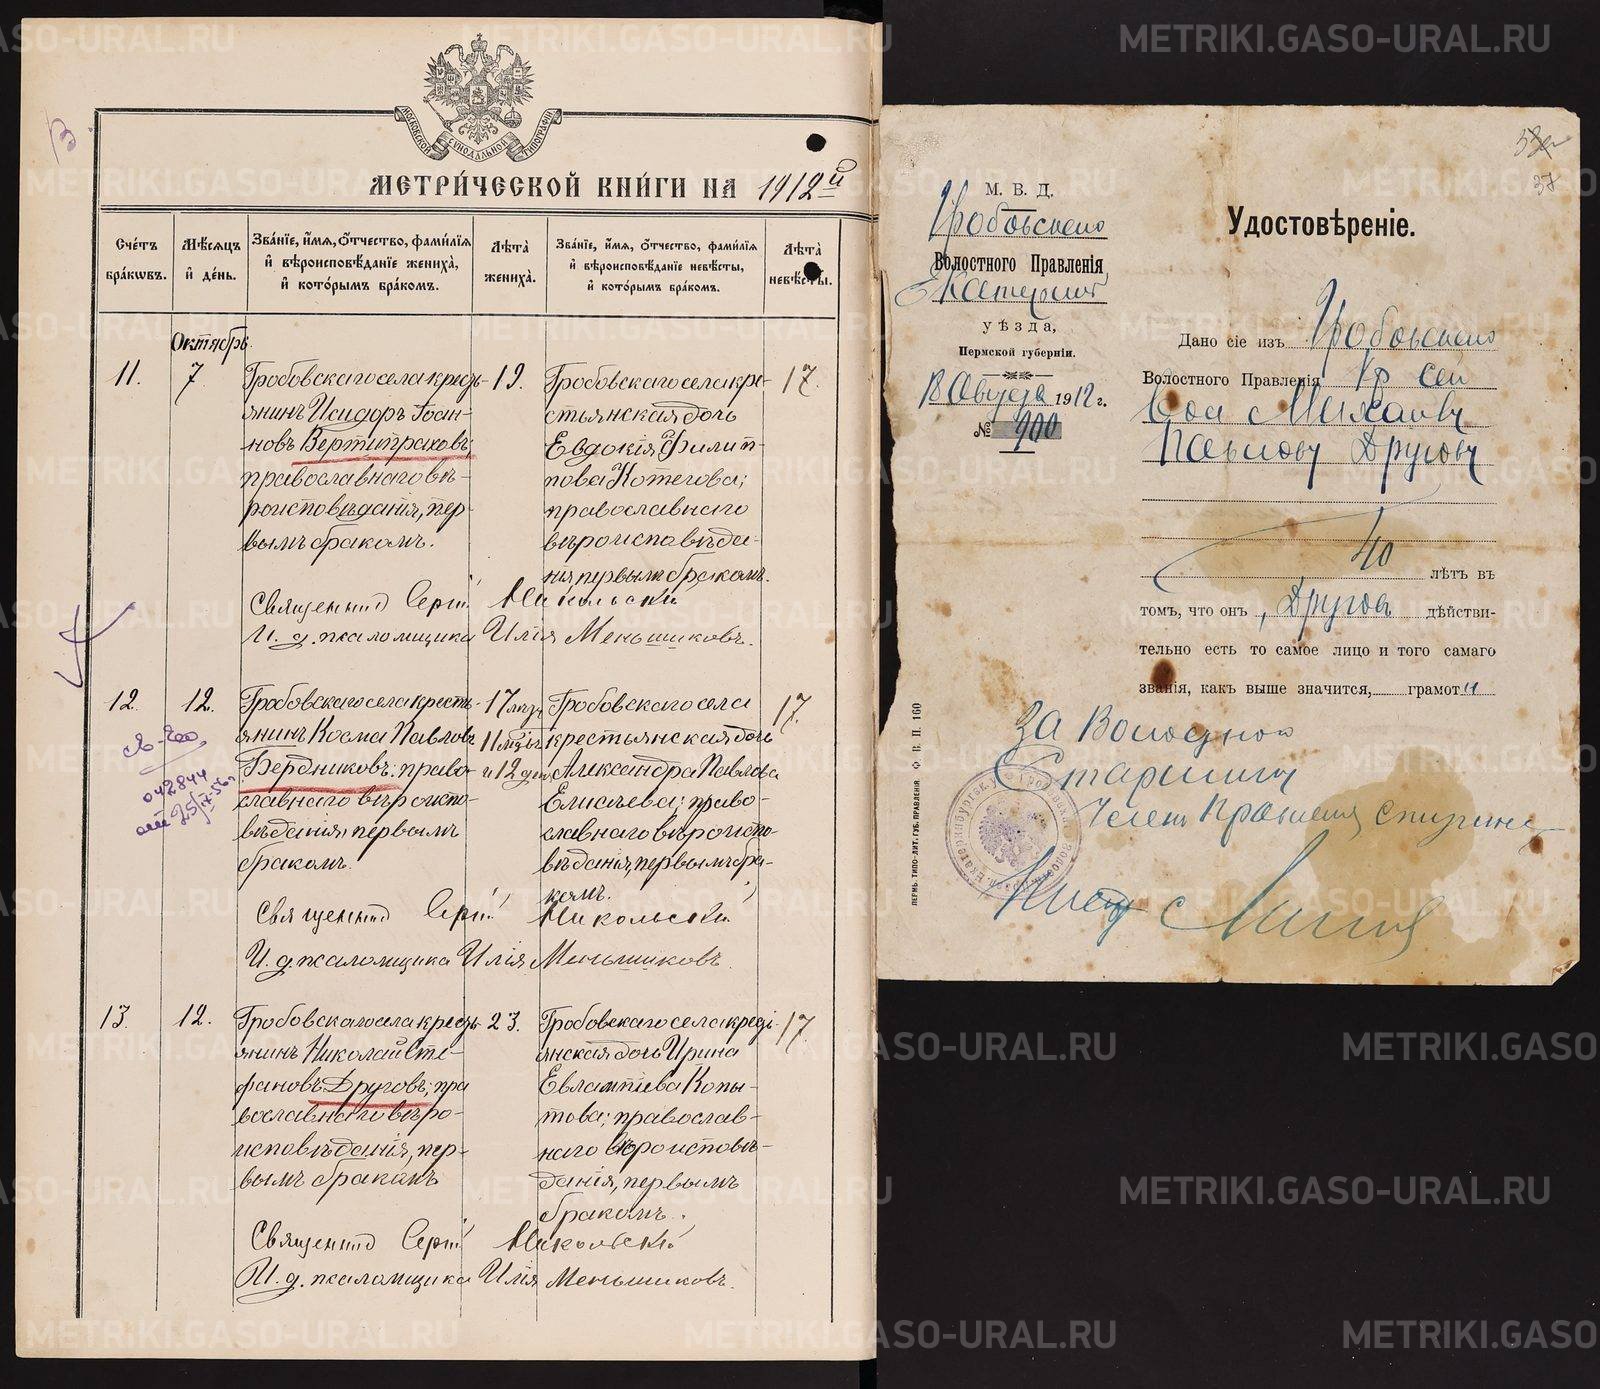 МОСКОВСКОЙ СѴНОДАЛЬНОЙ ТИПОГРАФІИ
МЕТРИ́ЧЕСКОЙ КНИ́ГИ НА 1912й
Сче́тъ бра́ковъ.
Мѣ́сѧцъ и де́нь.
Зва́нїе, и́мѧ, о́тчество, фами́лїѧ и вѣроисповѣ́данїе жениха̀, и кото́рымъ бра́комъ.
Лѣта̀ жениха̀.
Зва́нїе, и́мѧ, о́тчество, фами́лїѧ и вѣроисповѣ́данїе невѣ́сты, и кото́рымъ бра́комъ.
Лѣта̀ невѣ́сты.
Октябрь.
11.
7
Гробовскаго села кресть-
янинъ Исидоръ Іоан-
новъ Вертипраховъ;
православнаго вѣ-
роисповѣданія, пер-
вымъ бракомъ.
19.
Гробовскаго села кре-
стьянская дочь
Евдокія Филип-
пова Котегова;
православнаго
вѣроисповѣда-
нія первымъ бракомъ.
17.
Священник Сергій Никольскій
И. д. псаломщика Илія Меньшиковъ.
12.
12.
Гробовскаго села кресть-
янинъ Косма Павловъ
Бердниковъ; право-
славнаго вѣроиспо-
вѣданія, первымъ
бракомъ.
17 лѣтъ
11 мѣс.
и 12 дней
Гробовскаго села
крестьянская дочь
Александра Павлова
Елисѣева; право-
славнаго вѣроиспо-
вѣданія, первымъ бра-
комъ.
17.
042844
Священник Сергій Никольскій
И. д. псаломщика Илія Меньшиковъ.
13.
12.
Гробовскаго села кресть-
янинъ Николай Сте-
фановъ Друговъ; пра
вославнаго вѣро-
исповѣданія, пер-
вымъ бракомъ
23.
Гробовскаго села кресть-
янская дочь Ирина
Евлампіева Копы-
това; православ-
наго вѣроисповѣ-
данія, первымъ
бракомъ.
17.
Священник Сергій Никольскій
И. д. псаломщика Илія Меньшиковъ.
М. В. Д.
Гробовского
Волостного Правленія
Екатеринб
уѣзда,
Пермской губерніи.
18 Августа 1912 г.
№ 900
38
Удостовѣреніе.
Дано сіе изъ Гробовского
Волостного Правленія Кр сей
Вол Михаилу
Павлову Другову
40 лѣтъ въ
томъ, что онъ, Друговъ дѣйстви-
тельно есть то самое лицо и того самаго
званія, какъ выше значится, грамот
За Волостного
Старшину
Член Правленія
ПЕРМЬ. ТИПО-ЛИТ. ГУБ. ПРАВЛЕНІЯ Ф. В. П. 160
METRIKI.GASO-URAL.RU